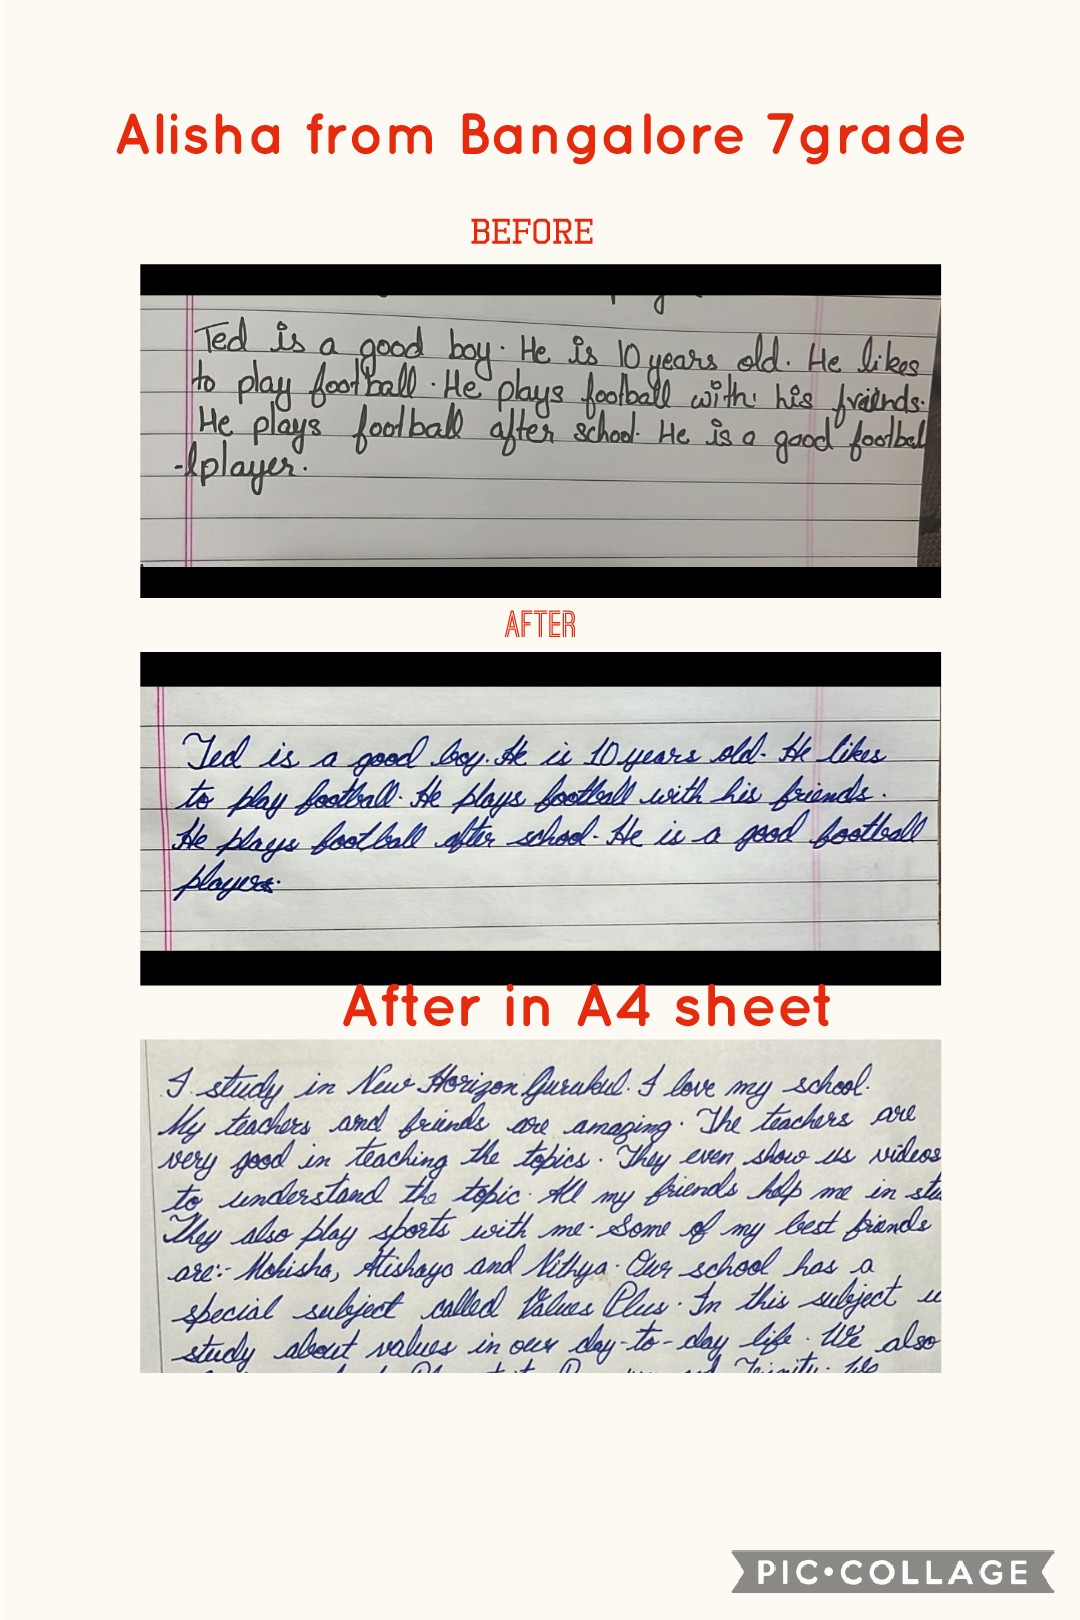 Alisha from Bangalore 7grade
BEFORE
Ted is a good boy. He is 10 years old. He likes
to play football. He plays football with his friends.
He plays football after school. He is a good footbal
-lplayer.
AFTER
Ted is a good boy. He is 10 years old. He likes
to play football. He plays football with his friends.
He plays football after school. He is a good football
player.
After in A4 sheet
I study in New Horizon Gurukul. I love my school.
My teachers and friends are amazing. The teachers are
very good in teaching the topics. They even show us videos
to understand the topic. All my friends help me in stu
They also play sports with me. Some of my best friends
are:- Mohisha, Atishaya and Nithya. Our school has a
special subject called Values Plus. In this subject
study about values in our day-to-day life. We also
Trinity. We
PIC•COLLAGE